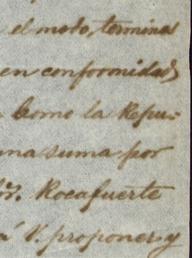 el modo, terminos
en conformidad
Como la Repu-
una suma por
Sr. Rocafuerte
á V. proponer y